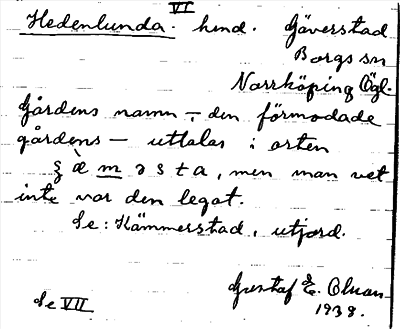 VI
Hedenlunda. hmd. Gäverstad
Borgs sn
Norrköping Ögl.
Gårdens namn, – den förmodade
gårdens – uttalas i orten
ʒ æ̀ m ə s t a, men man vet
inte var den legat.
Se: Hämmerstad, utjord.
Gustaf E. Olsson
1938.
Se VII